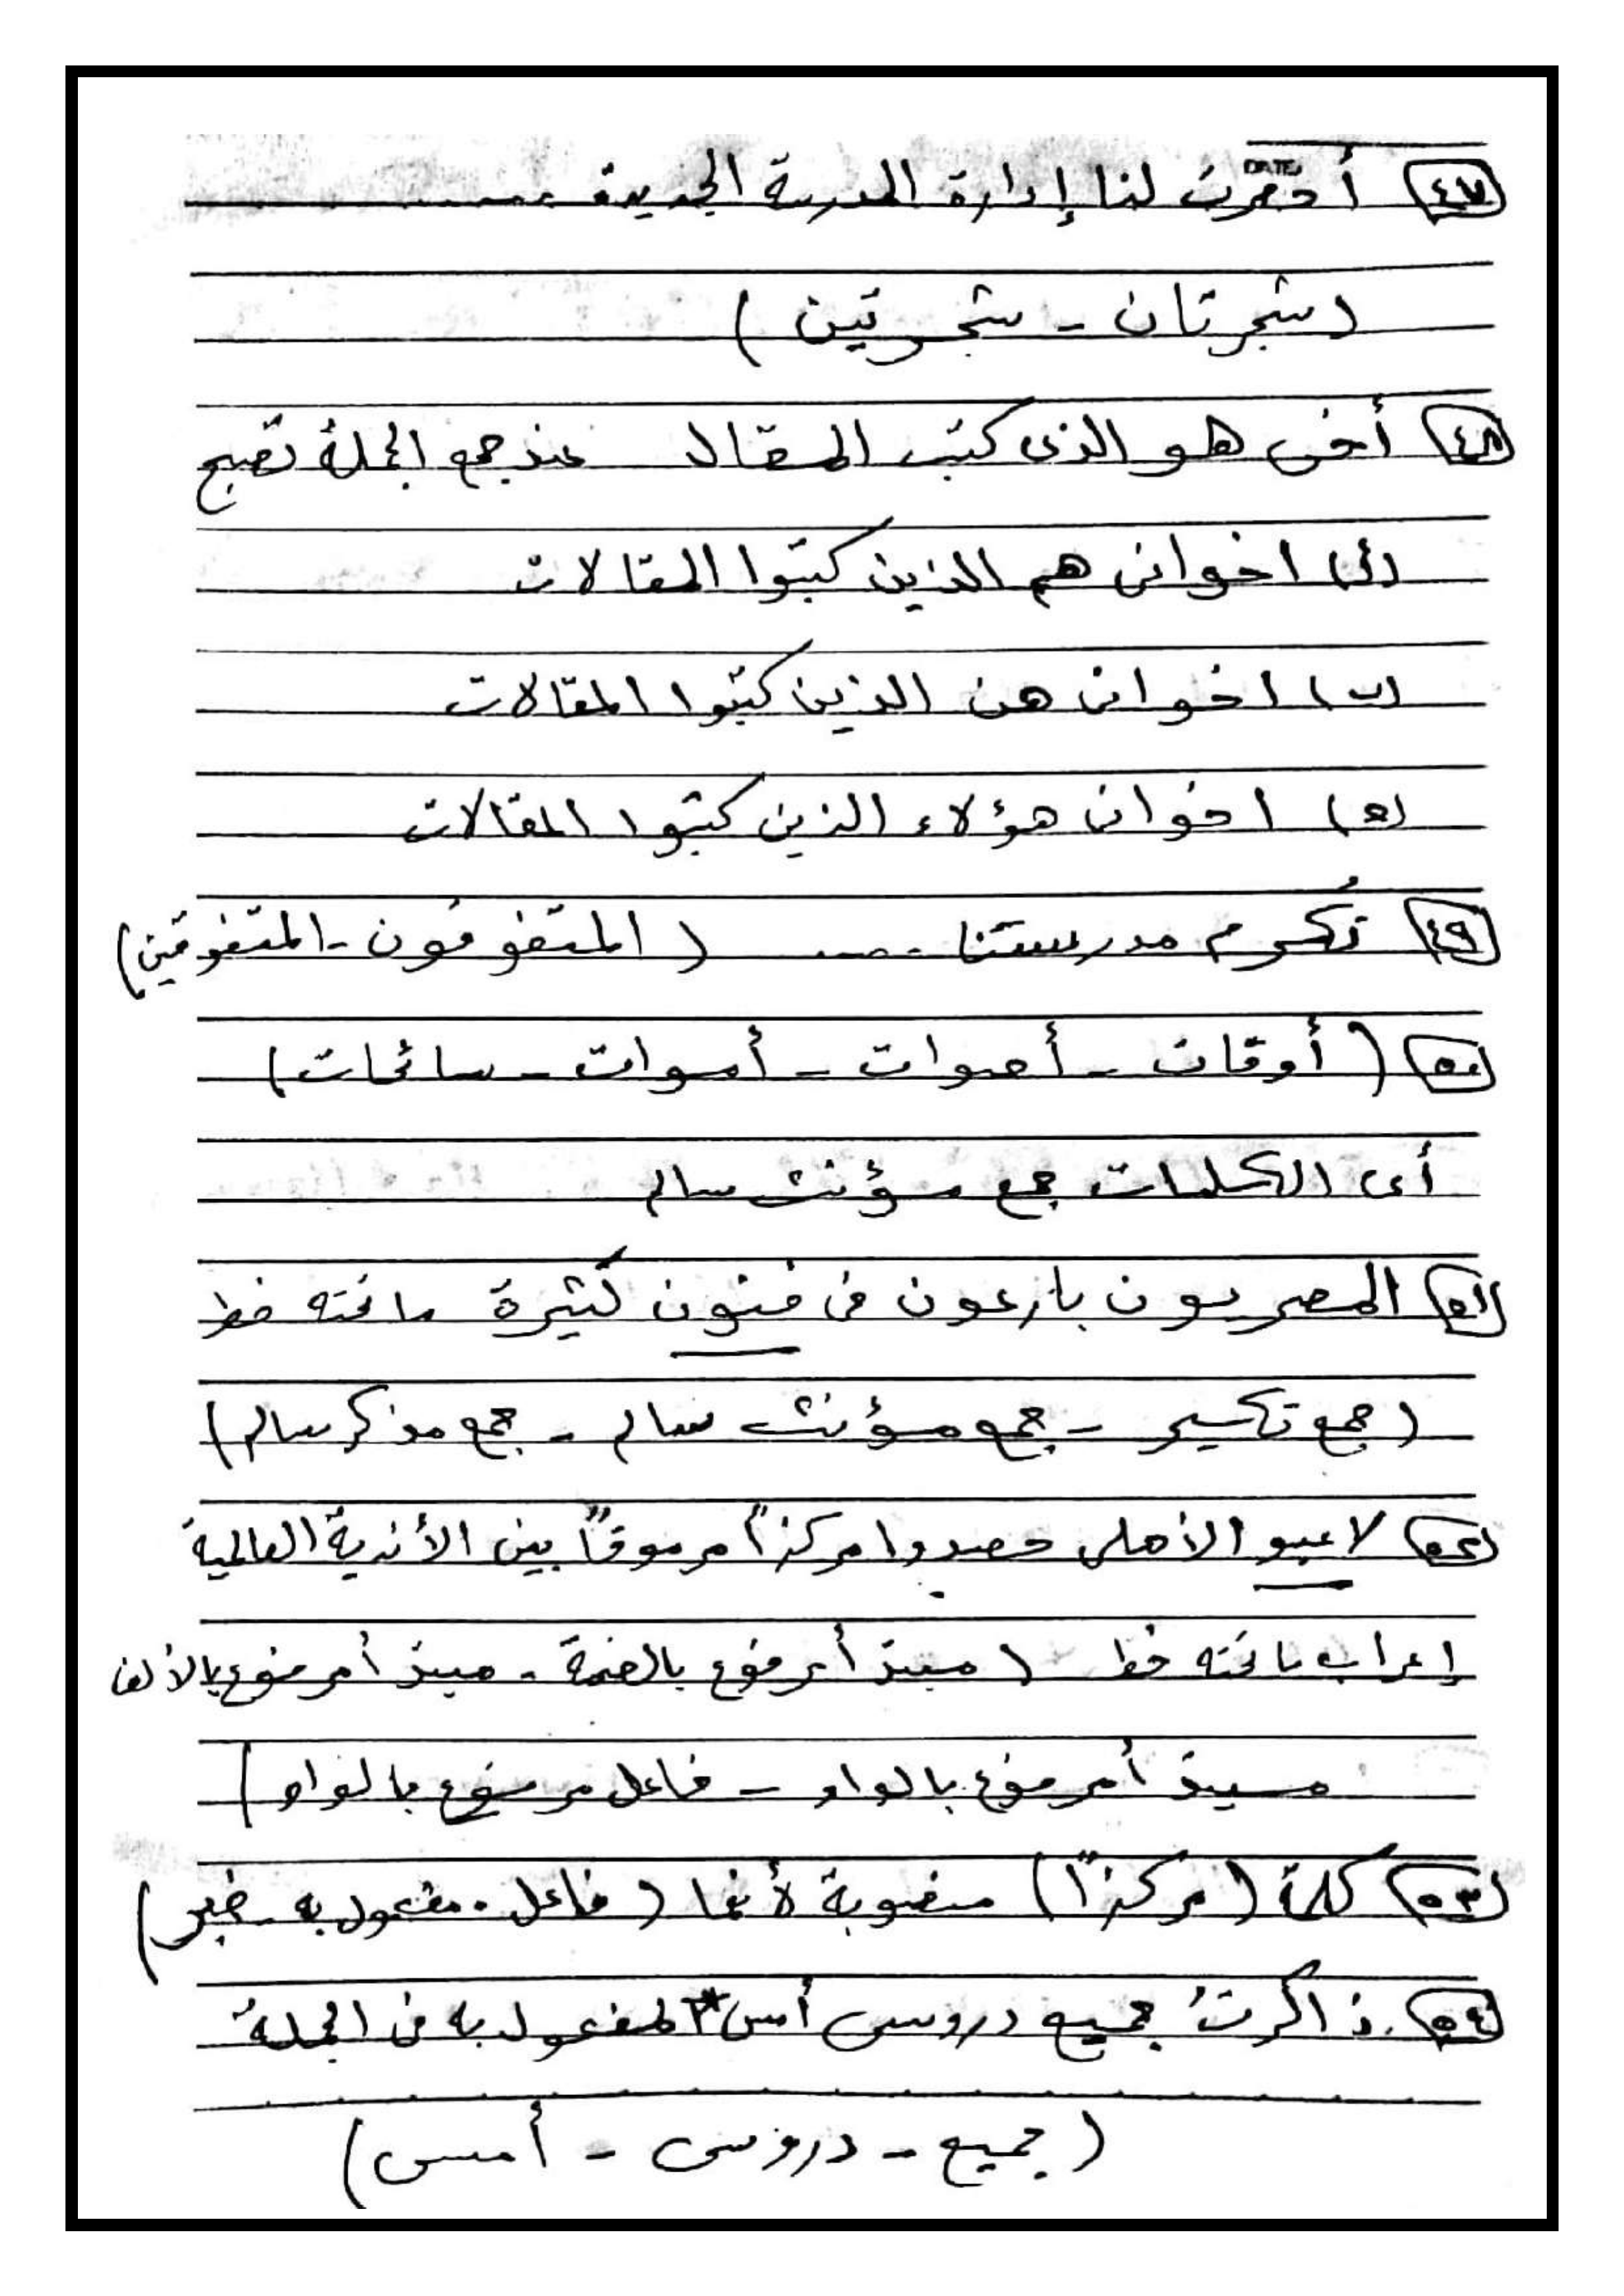 ٤٧ أحضرت لنا إدارة المدرسة الجديدة ......
(شجرتان - شجرتين)
٤٨ أخى هو الذى كتب المقال عند جمع الجملة تصبح
(أ) اخوانى هم الذين كتبوا المقالات
(ب) اخوانى هن الذين كتبوا المقالات
(ج) اخوانى هؤلاء الذين كتبوا المقالات
٤٩ تُكرم مدرستنا ...... (المتفوقون - المتفوقين)
٥٠ (أوقات - أصوات - أموات - سائحات)
أى الكلمات جمع مؤنث سالم
٥١ المصريون بارعون فى فنون كثيرة ما تحته خط
(جمع تكسير - جمع مؤنث سالم - جمع مذكر سالم)
٥٢ لاعبو الأهلى حصدوا مركزاً مرموقاً بين الأندية العالمية
إعراب ما تحته خط (مبتدأ مرفوع بالضمة - مبتدأ مرفوع بالألف
مبتدأ مرفوع بالواو - فاعل مرفوع بالواو)
٥٣ كلمة (مركزاً) منصوبة لأنها (فاعل - مفعول به - خبر)
٥٤ ذاكرتُ جميع دروسى أمس * المفعول به فى الجملة
(جميع - دروسى - أمس)